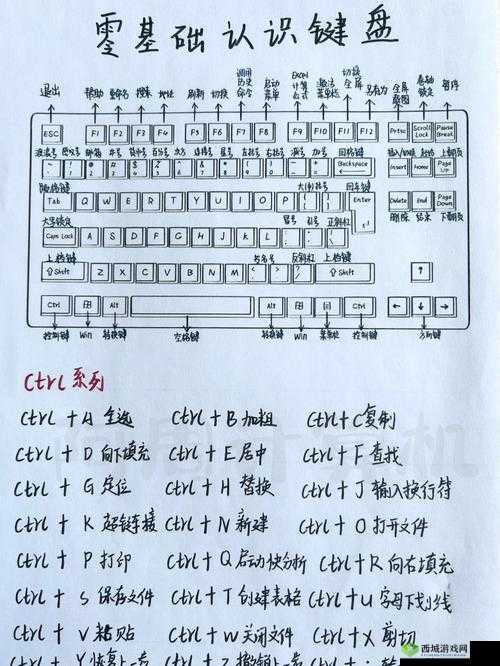 零基础认识键盘
退出 帮助 重命名 搜索 地址 刷新 切换 调用历史命令 启动菜单 Excel计算公式 激活菜单栏 切换全屏 另存为 全屏截图 卷动锁定 暂停
ESC F1 F2 F3 F4 F5 F6 F7 F8 F9 F10 F11 F12 Prtsc Scroll Lock Pause Break
波浪号 感叹号 邮箱 井号 美元号 百分号 次方 连接号 星号 左括号 右括号 减号 加号 回格键 插入/改写 起始 上翻页
Backspace Insert Home Page UP
制表键 大(中)括号 回车键
Tab Q W E R T Y U I O P Enter Delete End Page Down
大写锁定 冒号 引号 正斜杠 删除 结束 下翻页
Caps Lock A S D F G H J K L
上档键 书名号 反斜杠 上档键
⇧Shift Z X C V B N M ⇧Shift ↑
Ctrl Alt Alt Ctrl ← ↓ →
控制键 Win 转换键 空格键 转换键 Win 菜单栏 控制键 方向键
Ctrl系列
Ctrl + A 全选 Ctrl + B 加粗 Ctrl + C 复制
Ctrl + D 向下填充 Ctrl + E 居中 Ctrl + F 查找
Ctrl + G 定位 Ctrl + H 替换 Ctrl + J 输入换行符
Ctrl + K 超链接 Ctrl + N 新建 Ctrl + O 打开文件
Ctrl + P 打印 Ctrl + Q 启动快分析 Ctrl + R 向右填充
Ctrl + S 保存文件 Ctrl + T 创建表格 Ctrl + U 字母下划线
Ctrl + V 粘贴 Ctrl + W 关闭文件 Ctrl + X 剪切
Ctrl + Y 恢复上一步 Ctrl + Z 撤销上一步
西城游戏网